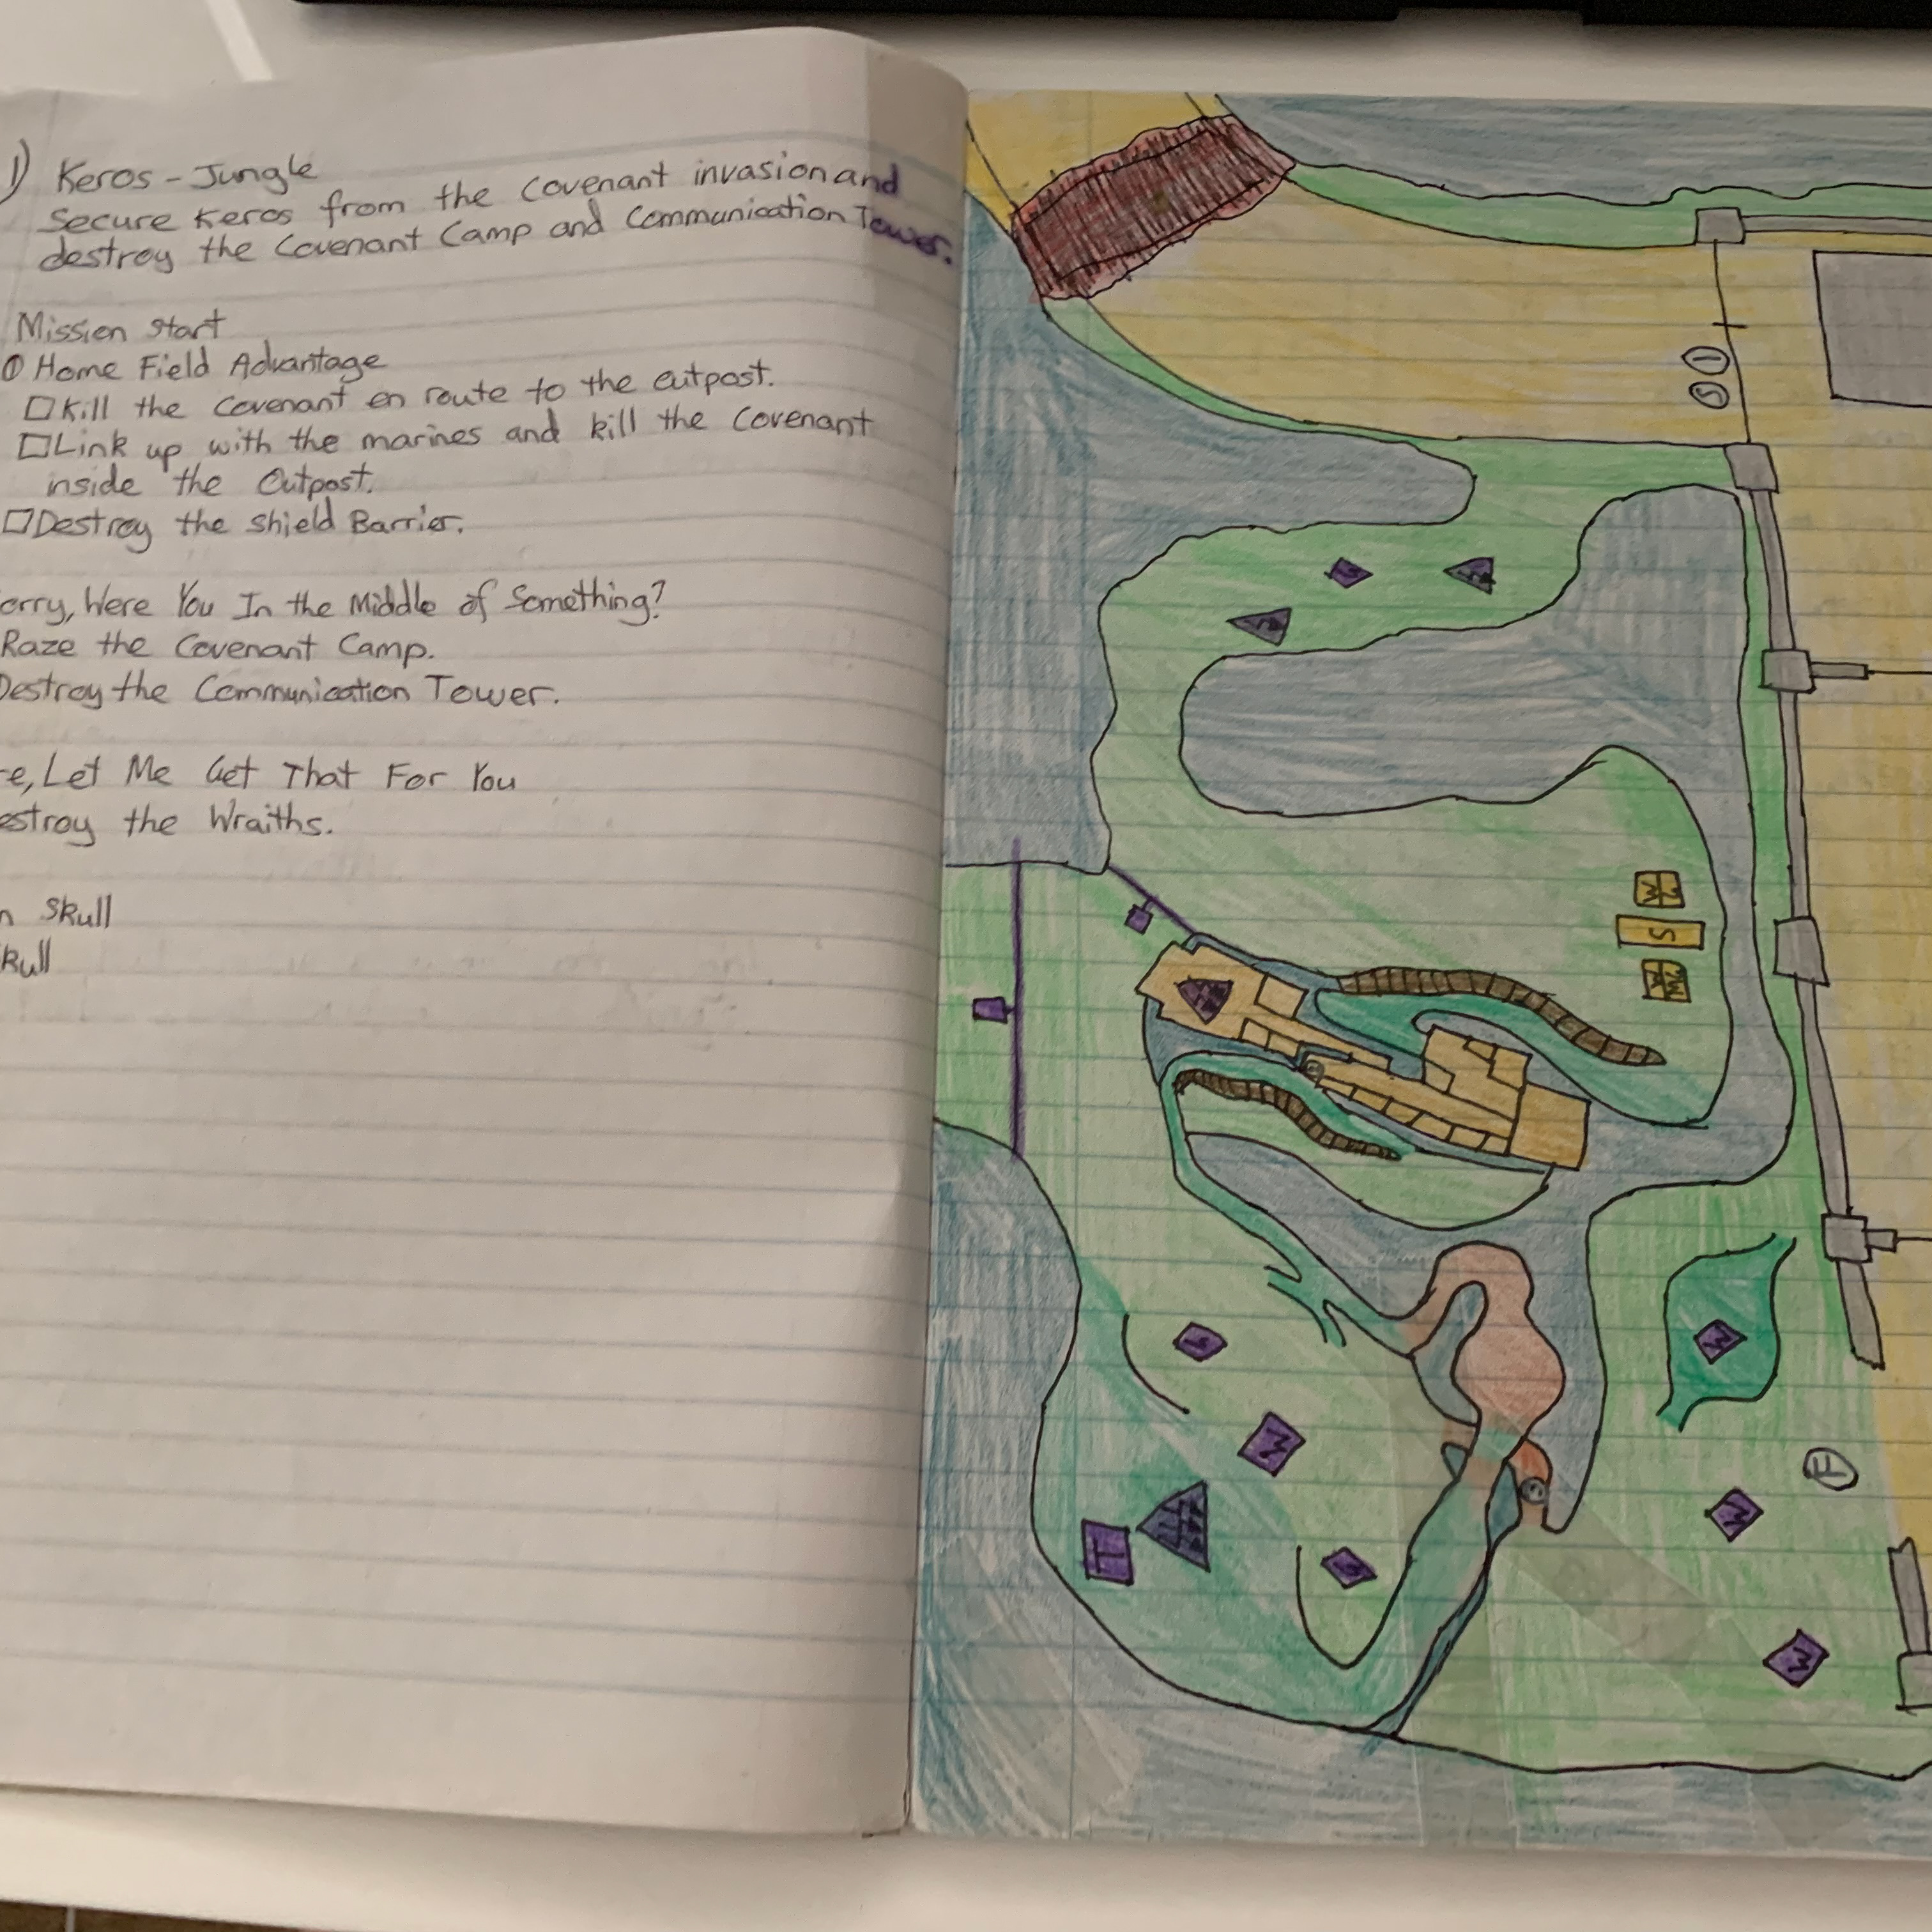 1) Keros - Jungle
Secure Keros from the Covenant invasion and
destroy the Covenant Camp and Communication Tower.
Mission Start
① Home Field Advantage
□ Kill the Covenant en route to the outpost.
□ Link up with the marines and kill the Covenant
inside the Outpost.
□ Destroy the Shield Barrier.
orry, Were You In the Middle of Something?
Raze the Covenant Camp.
Destroy the Communication Tower.
re, Let Me Get That For You
estroy the Wraiths.
n Skull
kull
1
S
S
W
T
W
F
W
W